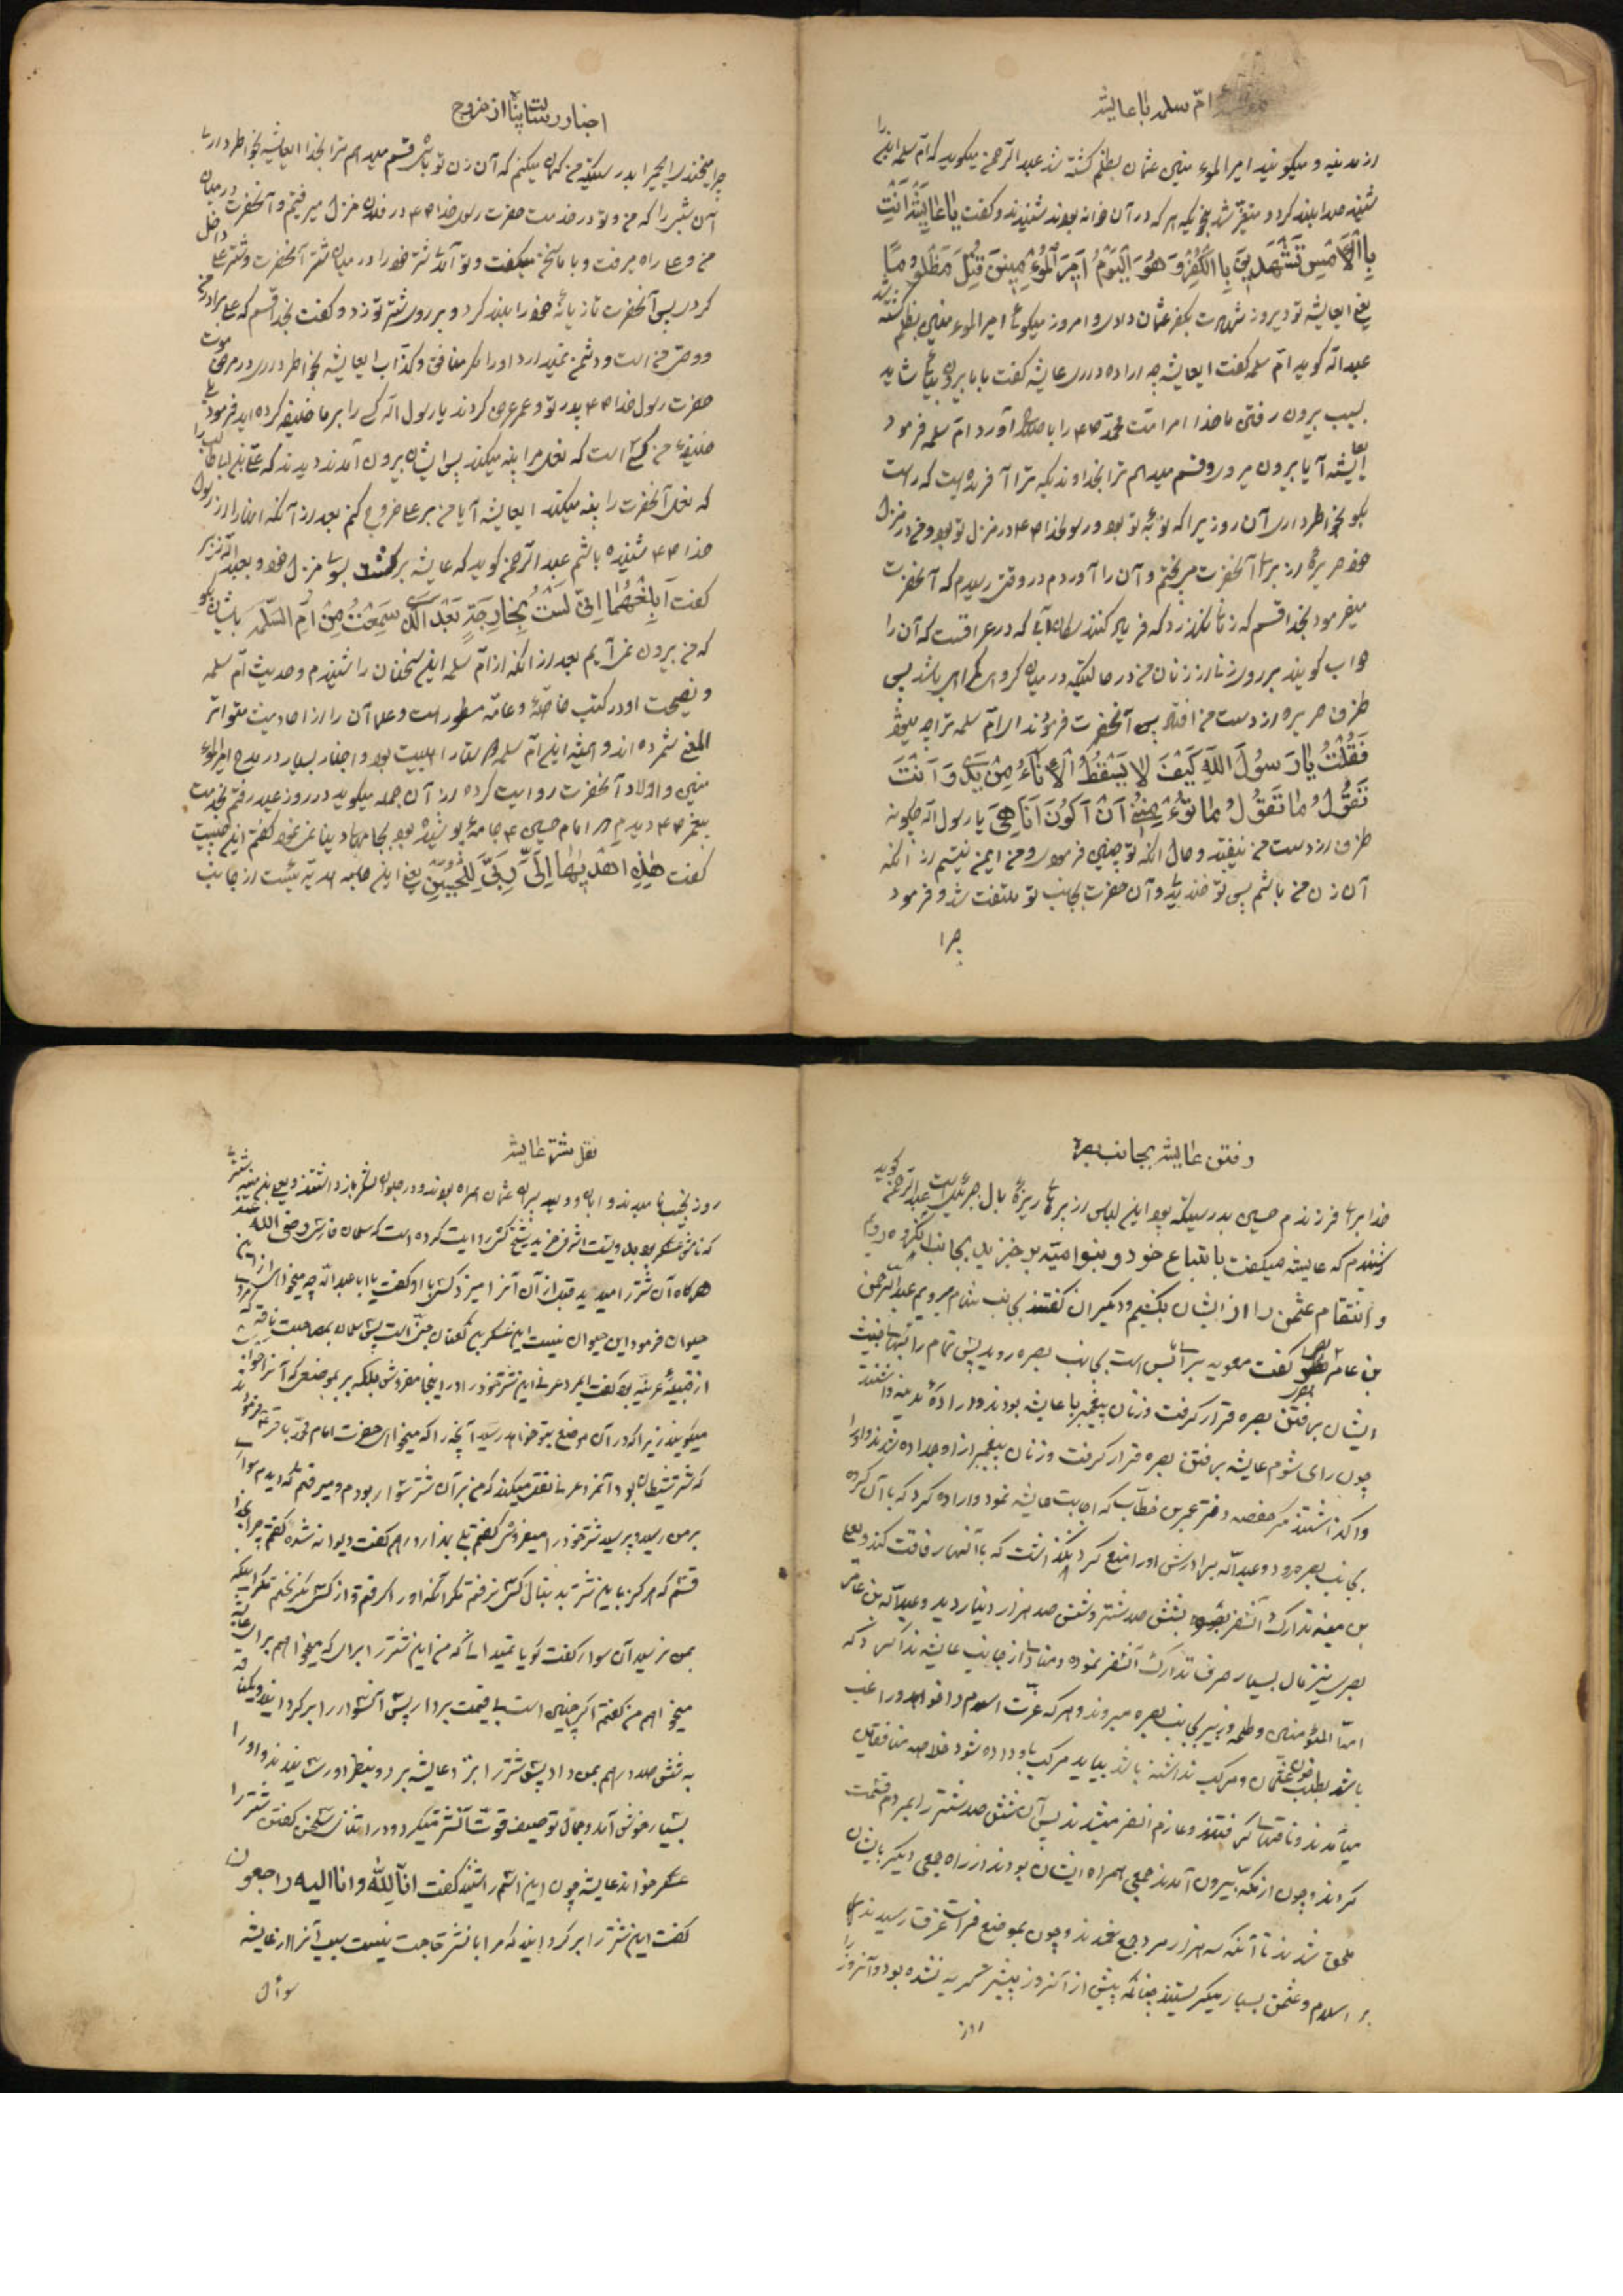 امّ سلمه با عایشه
از مدینه و میگویند امیر المومنین عثمان بظلم کشته شد عبد الرّحمن میگوید که امّ سلمه این را
شنید صدا بلند کرد و متغیّر شد بنحویکه هر که در آن خانه بودند شنیدند و گفت یا عایِشَةُ اَنْتِ
بِالْاَمْسِ تَشْهَدِینَ بِالْکُفْرِ وَ هُوَ الْیَوْمُ اَمِیرَ الْمُؤْمِنِینَ قُتِلَ مَظْلُومًا
یعنی ایعایشه تو دیروز شهادت بکفر عثمان دادی و امروز میگوئی امیر المومنین بظلم کشته شد
عبد الله گوید امّ سلمه گفت ایعایشه چه اراده داری عایشه گفت با ما بیرون بیائی شاید
بسبب بیرون رفتن ما خدا امر امّت محمّد ص را باصلاح آورد امّ سلمه فرمود
ایعایشه آیا بیرون میروی و قسم میدهم ترا بخداوندیکه ترا آفریده است که راست
بگو بخاطر داری آن روزیرا که نوبهٔ تو بود و رسولخدا ص در منزل تو بود و من در منزل
خود حریره از برای آنحضرت می پختم و آن را آوردم در وقتی رسیدم که آنحضرت
میفرمود بخدا قسم که زمانی نگذرد که فریاد کنند سگان آبی که در عراقست که آن را
حواب گویند بر روی زنی از زنان من در حالتیکه در میان گروهی باشد پس
ظرف حریره از دست من افتاد پس آنحضرت فرمودند ای امّ سلمه ترا چه میشود
فَقُلْتُ یَا رَسُولَ اللّهِ کَیْفَ لَا یَسْقُطُ الْاِنَاءُ مِنْ یَدِی وَ اَنْتَ
تَقُولُ مَا تَقُولُ مَا تُوءْمِنُنِی اَنْ اَکُونَ اَنَا هِیَ یا رسول الله چگونه
ظرف از دست من نیفتد و حال آنکه تو چنین فرمودی و من ایمن نیستم از آنکه
آن زن من باشم پس تو خندیدی و آن حضرت بجانب تو ملتفت شد و فرمود
چرا
چرا میخندی ای حمیرا بدرستیکه من گمان میکنم که آن زن تو باشی قسم میدهم ترا بخدا ایعایشه بخاطر داری
آن شبی را که من و تو در خدمت حضرت رسول خدا ص در فلان منزل میرفتیم و آنحضرت در میان
من و علی راه میرفت و با ما سخن میگفت و تو آمدی شتر خود را در میان شتر آنحضرت و شتر علی داخل
کردی پس آنحضرت تازیانهٔ خود را بلند کرد و بر روی شتر تو زد و گفت بخدا قسم که علی برادر من
و وصیّ من است و دشمن نمیدارد او را مگر منافق و کذّاب ایعایشه بخاطر داری در مرض موت
حضرت رسول خدا ص پدر تو و عمر عرض کردند یا رسول الله کی را بر ما خلیفه کرده اید فرمود
خلیفهٔ من کسی است که نعل مرا پینه میکند پس ایشان بیرون آمدند دیدند که علی بن ابیطالب را
که نعل آنحضرت را پینه میکند ایعایشه آیا من بر علی خروج کنم بعد از آنکه اینها را از رسول
خدا ص شنیده باشم عبد الرّحمن گوید که عایشه برگشت بسوی منزل خود و بعبد الله زبیر
گفت اَبْلِغْهُمَا اِنِّی لَسْتُ بِخَارِجَةٍ بَعْدَ الَّذِی سَمِعْتُ مِنْ اُمِّ السَّلَمَه بایشان بگو
که من بیرون نمی آیم بعد از آنکه از امّ سلمه این سخنان را شنیدم و حدیث امّ سلمه
و نصیحت او در کتب خاصّه و عامّه مسطور است و علما آن را از احادیث متواتر
المعنی شمرده اند و همیشه این امّ سلمه پرستار اهلبیت بود و اخبار بسیار در مدح امیر المو
منین و اولاد آنحضرت روایت کرده از آن جمله میگوید در روز عید رفتم بخدمت
پیغمبر ص دیدم که امام حسین ع جامهٔ پوشیده بود بجامهای دنیا نمی نمود گفتم این چیست
گفت هٰذِهِ اَهْدَیهَا اِلَیَّ رَبِّی لِلْحُسَیْنِ یعنی این جامه هدیه ئیست از جانب
رفتن عایشه بجانب بصره
خدا برای فرزندم حسین بدرستیکه بود این لباس از پرهای ریزهٔ بال جبرئیلست عبد الرّحمن گوید
شنیدم که عایشه میگفت باتباع خود و بنو امیّه برخیزید بجانب آنگروه رویم
و انتقام عثمن را از ایشان بکشیم و دیگران گفتند بجانب شام میرویم عبد الرّحمن
بن عامر گفت معویه برای شام بس است بجانب بصره روید پس تمام رایها
ایشان برفتن بصره قرار گرفت و زنان پیغمبر با عایشه بودند و ارادهٔ مدینه داشتند
چون رای شوم عایشه برفتن بصره قرار گرفت و زنان پیغمبر از او جدا شدند و او را
واگذاشتند مگر حفصه دختر عمر بن خطّاب که اجابت عایشه نمود و اراده کرد که با آن گروه
بجانب بصره رود و عبد الله برادرش او را منع کرد نگذاشت که با آنها رفاقت کند و یعلی
بن منیه تدارک آنسفر بشش صد شتر و شش صد هزار دینار دید و عبد الله بن عامر
بصری نیز مال بسیار صرف تدارک آنسفر نموده و منادی از جانب عایشه ندا کرد که
امّ المؤمنین و طلحه و زبیر بجانب بصره میروند و هر که عزّت اسلام را خواهد و راغب
باشد بطلب خون عثمان و مرکب نداشته باشد بیاید مرکب باو داده شود خلاصه منافقان
میآمدند و ناقها میگرفتند و عازم آنسفر میشدند پس آن شش صد شتر را بمردم قسمت
کردند و چون از مکّه بیرون آمدند جمعی همراه ایشان بودند و از راه جمعی دیگر بایشان
ملحق شدند تا آنکه سه هزار مرد جمع شدند و چون بموضع ذات عرق رسیدند
بر اسلام و عثمن بسیار میگریستند چنانکه پیش از آنروز بیشتر گریه نشده بود و آنروز را
روز
نقل شتر عایشه
روز نحیب نامیدند و ابان و ولید پسران عثمان همراه بودند و در جلو لشکر باز داشتند و یعلی بن منیه شتری
که نامش عسکر بود بدویست اشرفی خرید شیخ کشی روایت کرده است که سلمان فارسی رضی الله عنه
هرگاه آن شتر را میدید قبل از آن آنرا میزد کسی با او گفت یا ابا عبد الله چه میخواهی از این
حیوان فرمود این حیوان نیست این عسکر بن کنعان جنّی است پس سلمان بصاحب ناقه که مردی
از قبیلهٔ عرینه بود گفت ای اعرابی این شتر خود را در اینجا مفروش بلکه ببر بموضعی که آنرا حواب
میگویند زیرا که در آن موضع بتو خواهد رسید آنچه را که میخواهی حضرت امام محمّد باقر ع فرمودند
که شتر شیطان بود و آنمرد اعرابی نقل میکند که من بر آن شتر سوار بودم و میرفتم که دیدم سواری
بر من رسید و پرسید شتر خود را میفروشی گفتم بلی بهزار درهم گفت دیوانه شده گفتم چرا بخدا
قسم که هرگز باین شتر بدنبال کسی نرفتم مگر آنکه او را گرفتم و از کسی نگریختم مگر اینکه
بمن نرسید آن سوار گفت گویا نمیدانی که من این شتر را برای که میخواهم برای عایشه
میخواهم من گفتم اگر چنین است بی قیمت بردار پس آنسوار را برگردانید و یکناقه
به شش صد درهم بمن داد پس شتر را بنزد عایشه برد و بنظر او رسانیدند و او را
بسیار خوش آمد و جمّال توصیف قوّت آنشتر میکرد و در اثنای سخن گفتن شتر را
عسکر خواند عایشه چون این اسم را شنید گفت انّا للّه و انا الیه راجعون
گفت این شتر را برگردانید که مرا باین شتر حاجت نیست سبب آنرا از عایشه
سوأل
اخبار رسالتپناه از خروج